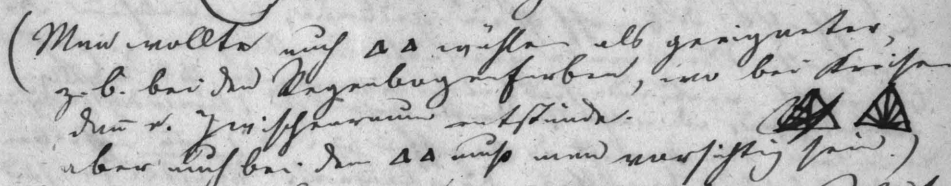 (Man wollte auch ▲▲ wählen als geeigneter,
z. b. bei den Regenbogenfarben, wo bei Kreisen
dann e. Zwischenraum entstünde.
aber auch bei den ▲▲ muß man vorsichtig sein.)